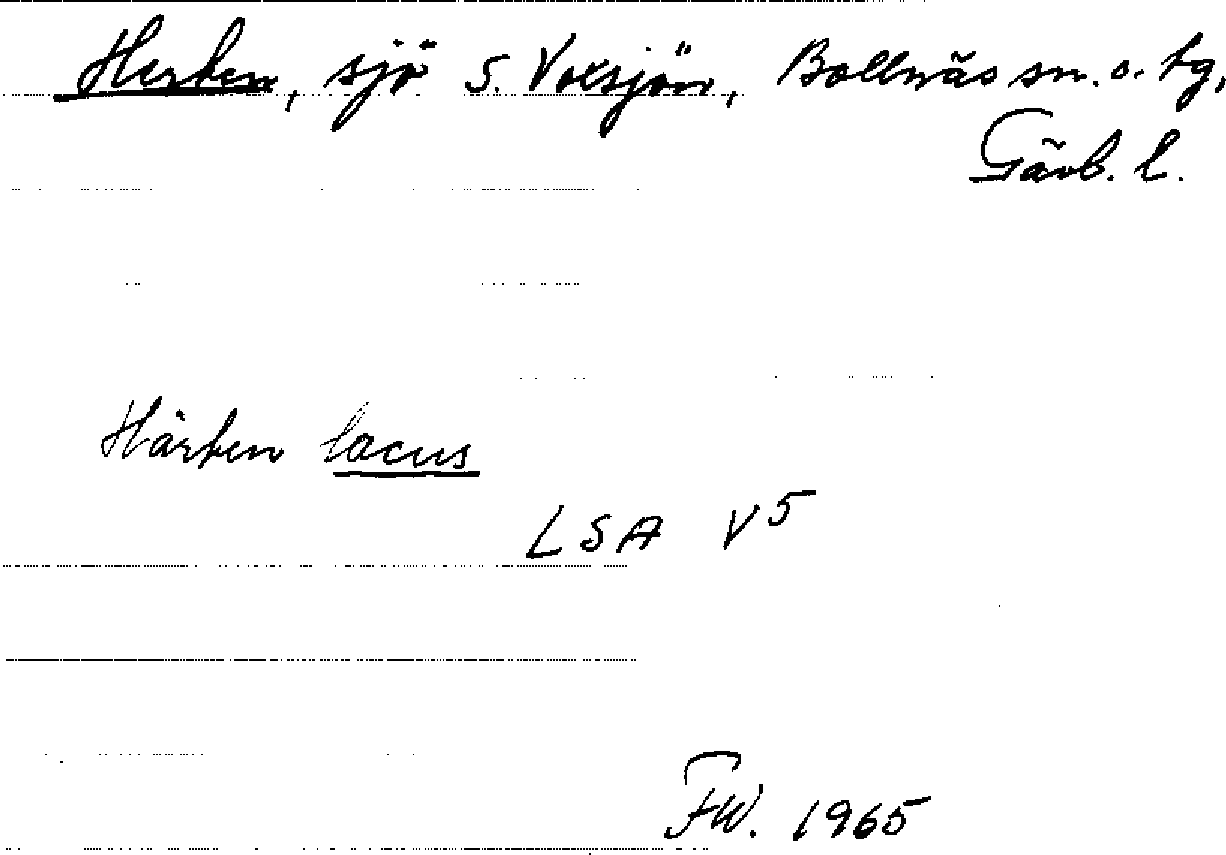 Herten, sjö S. Voxsjön, Bollnäs sn. o. tg,
Gävb. l.
Härten lacus
LSA V5
FW. 1965